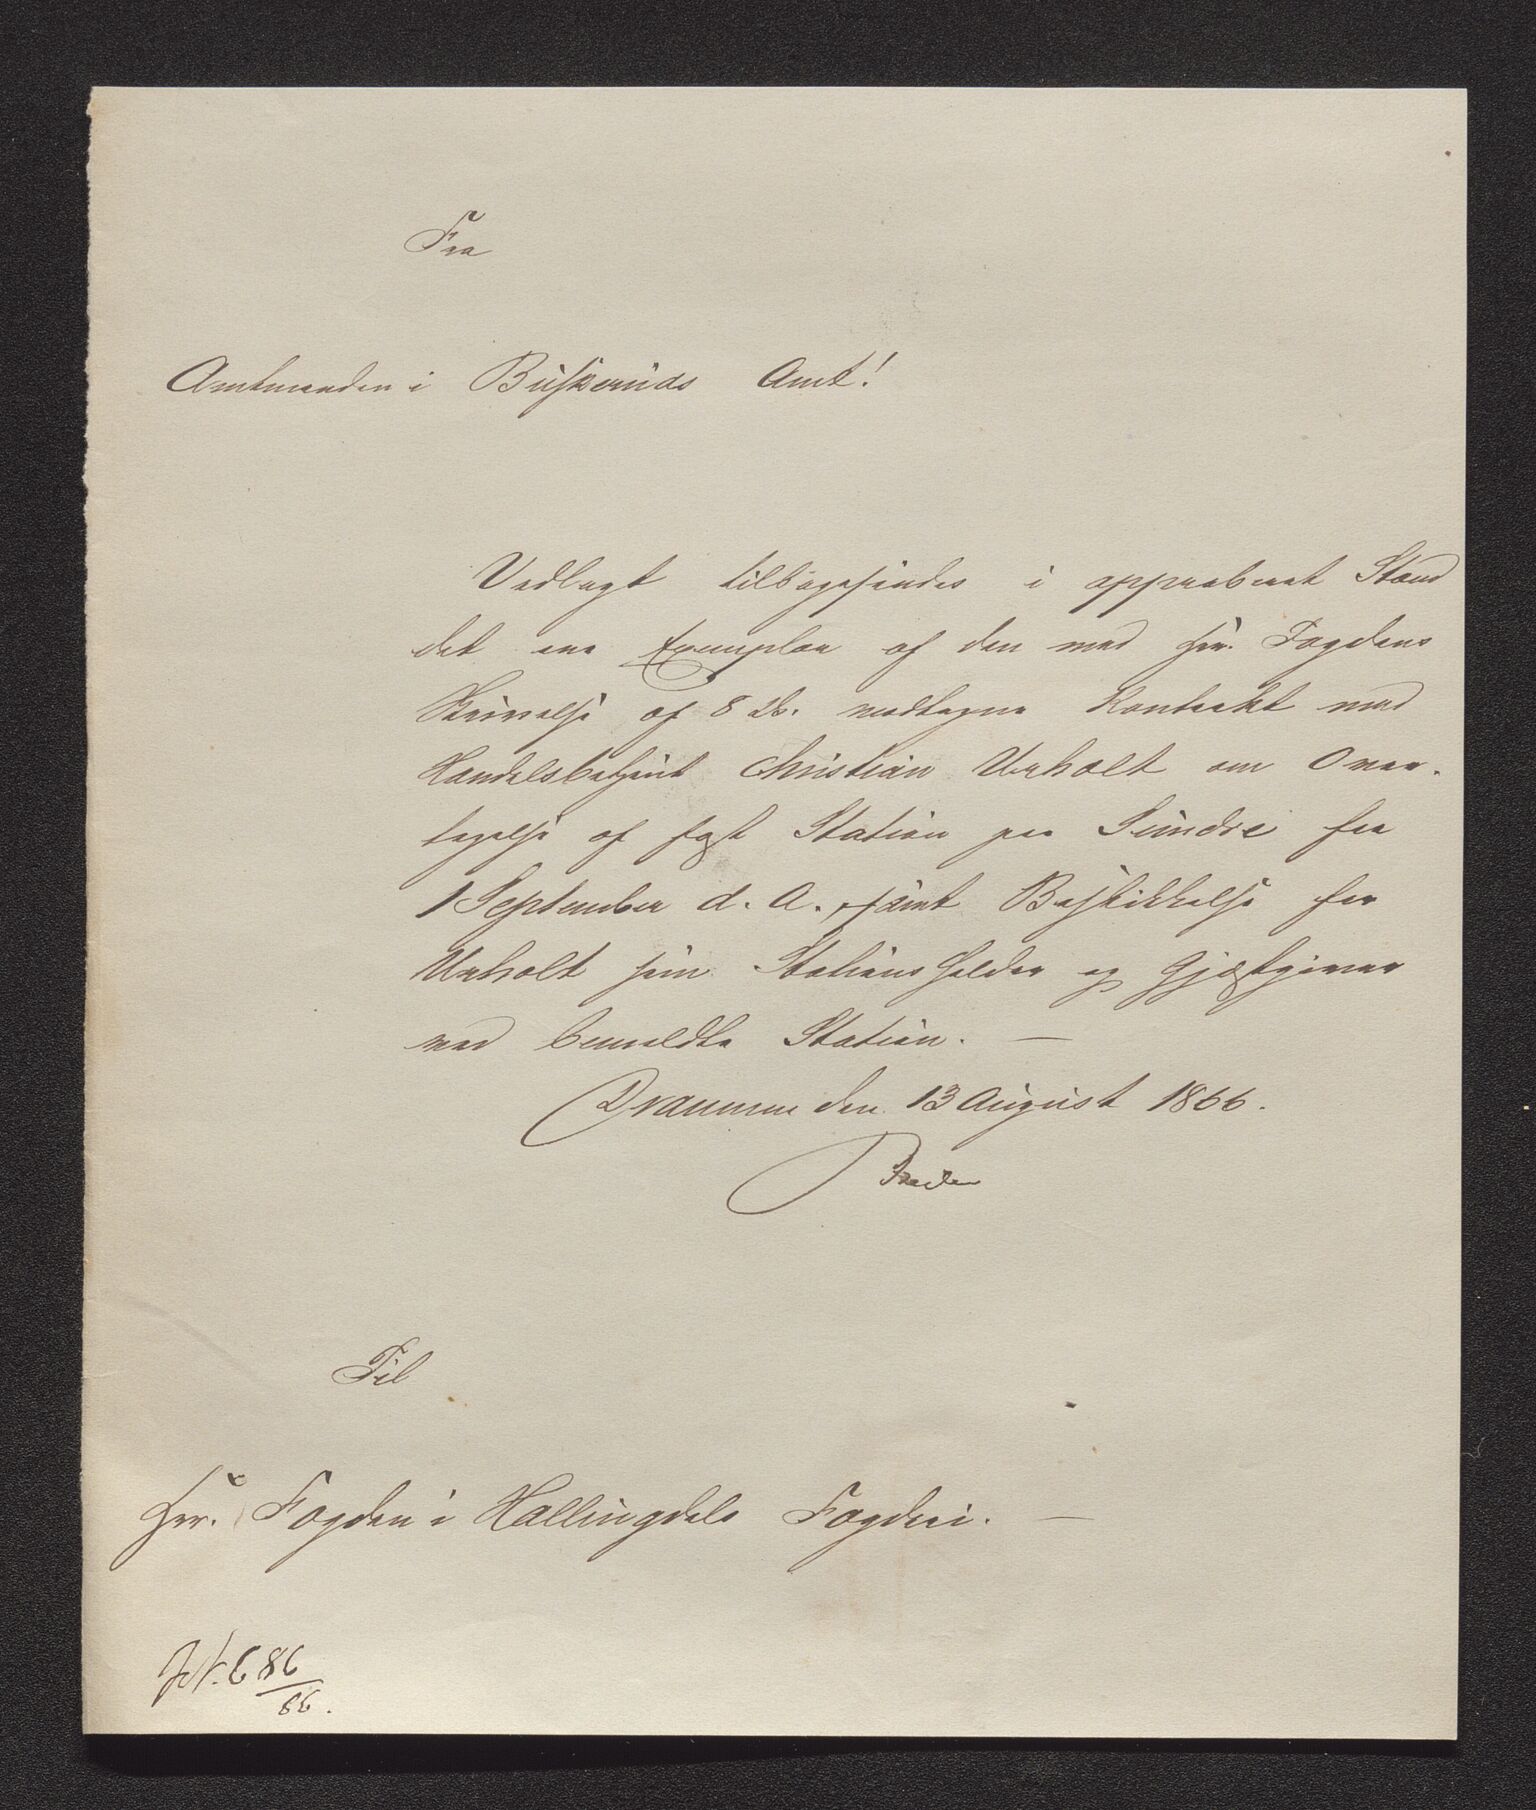 Fra
Amtmanden i Buskeruds Amt!
Vedlagt tilbagesendes i approberet Stand
det ene Exemplar af den med Hr. Fogdens
Skrivelse af 8 ds. modtagne Kontrakt med
Handelsbetjent Christian Urholt om Over-
tagelse af fast Station paa Sundre fra
1 September d. A. samt Beskikkelse for
Urholt som Stationsholder og Gjæstgiver
ved bemeldte Station. —
Drammen den 13 August 1866.
Til
Hr. Fogden i Hallingdals Fogderi. —
686
66.